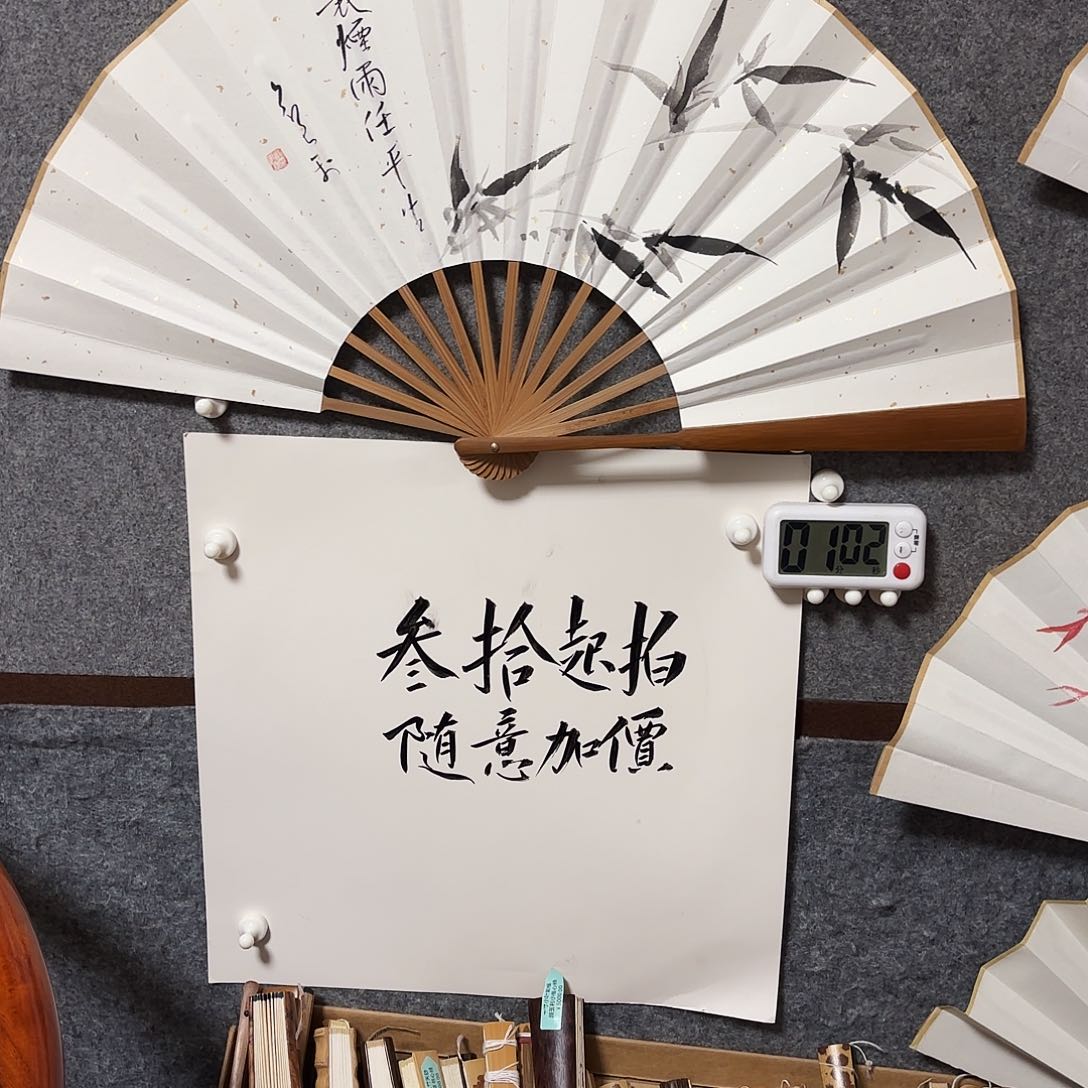 蓑煙雨任平生
叁拾起拍
随意加價
01 02
分 秒